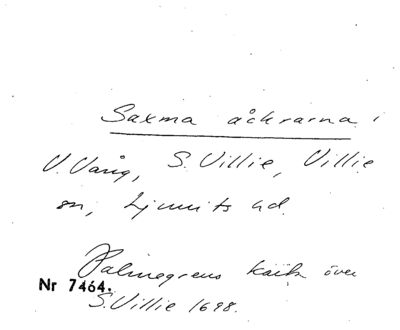 Saxma åckrarna i
V. Vång, S. Villie, Villie
sn, Ljunits hd.
Palmegrens karta över
Nr 7464.
S. Villie 1698.